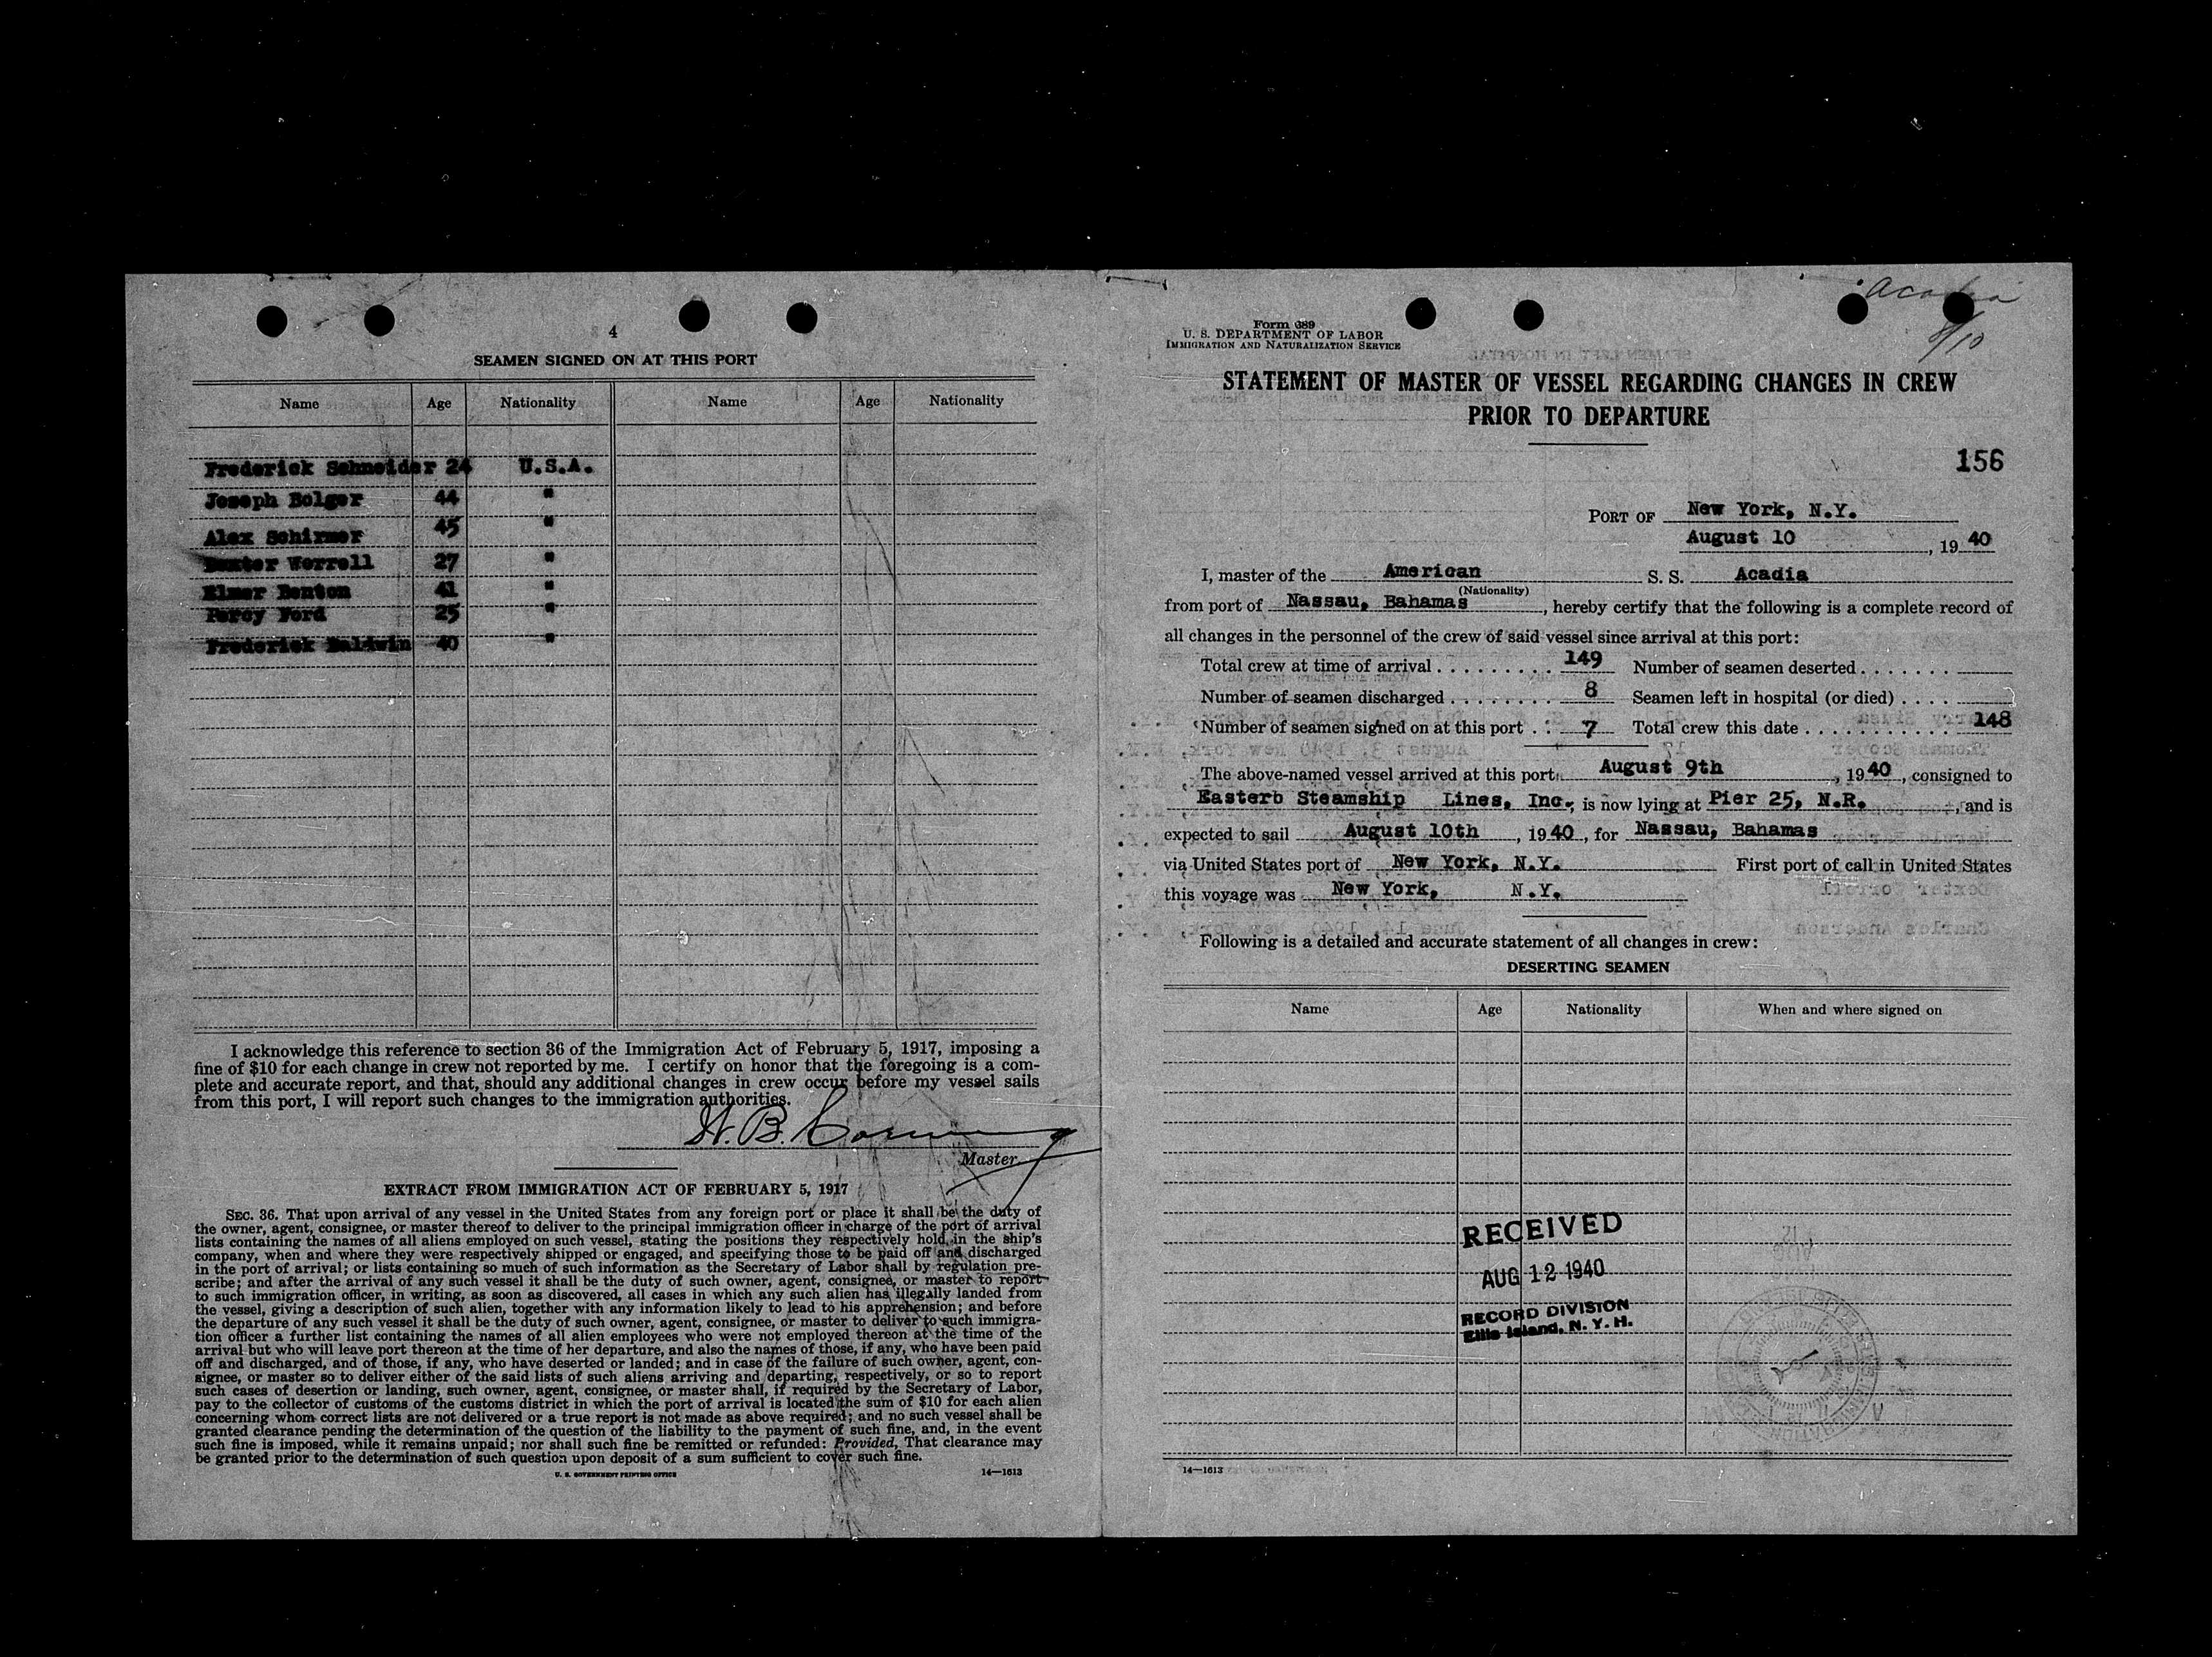 4
SEAMEN SIGNED ON AT THIS PORT
Name Age Nationality Name Age Nationality
Frederick Schneider 24 U.S.A.
Joseph Bolger 44 "
Alex Schirmer 45 "
Dexter Worrell 27 "
Elmer Benton 41 "
Percy Ford 25 "
Frederick Baldwin 40 "
I acknowledge this reference to section 36 of the Immigration Act of February 5, 1917, imposing a
fine of $10 for each change in crew not reported by me. I certify on honor that the foregoing is a com-
plete and accurate report, and that, should any additional changes in crew occur before my vessel sails
from this port, I will report such changes to the immigration authorities.
Master.
EXTRACT FROM IMMIGRATION ACT OF FEBRUARY 5, 1917
SEC. 36. That upon arrival of any vessel in the United States from any foreign port or place it shall be the duty of
the owner, agent, consignee, or master thereof to deliver to the principal immigration officer in charge of the port of arrival
lists containing the names of all aliens employed on such vessel, stating the positions they respectively hold in the ship's
company, when and where they were respectively shipped or engaged, and specifying those to be paid off and discharged
in the port of arrival; or lists containing so much of such information as the Secretary of Labor shall by regulation pre-
scribe; and after the arrival of any such vessel it shall be the duty of such owner, agent, consignee, or master to report
to such immigration officer, in writing, as soon as discovered, all cases in which any such alien has illegally landed from
the vessel, giving a description of such alien, together with any information likely to lead to his apprehension; and before
the departure of any such vessel it shall be the duty of such owner, agent, consignee, or master to deliver to such immigra-
tion officer a further list containing the names of all alien employees who were not employed thereon at the time of the
arrival but who will leave port thereon at the time of her departure, and also the names of those, if any, who have been paid
off and discharged, and of those, if any, who have deserted or landed; and in case of the failure of such owner, agent, con-
signee, or master so to deliver either of the said lists of such aliens arriving and departing, respectively, or so to report
such cases of desertion or landing, such owner, agent, consignee, or master shall, if required by the Secretary of Labor,
pay to the collector of customs of the customs district in which the port of arrival is located the sum of $10 for each alien
concerning whom correct lists are not delivered or a true report is not made as above required; and no such vessel shall be
granted clearance pending the determination of the question of the liability to the payment of such fine, and, in the event
such fine is imposed, while it remains unpaid; nor shall such fine be remitted or refunded: Provided, That clearance may
be granted prior to the determination of such question upon deposit of a sum sufficient to cover such fine.
U. S. GOVERNMENT PRINTING OFFICE 14—1613
Acadia
8/10
Form 689
U. S. DEPARTMENT OF LABOR
IMMIGRATION AND NATURALIZATION SERVICE
STATEMENT OF MASTER OF VESSEL REGARDING CHANGES IN CREW
PRIOR TO DEPARTURE
156
PORT OF New York, N.Y.
August 10, 1940
I, master of the American S. S. Acadia
(Nationality)
from port of Nassau, Bahamas, hereby certify that the following is a complete record of
all changes in the personnel of the crew of said vessel since arrival at this port:
Total crew at time of arrival . . . . . . . . . 149 Number of seamen deserted . . . . . . .
Number of seamen discharged . . . . . . . . 8 Seamen left in hospital (or died) . . . .
Number of seamen signed on at this port . . 7 Total crew this date . . . . . . . . . . . . 148
The above-named vessel arrived at this port August 9th, 1940, consigned to
Easterb Steamship Lines, Inc., is now lying at Pier 25, N.R., and is
expected to sail August 10th, 1940, for Nassau, Bahamas
via United States port of New York, N.Y. First port of call in United States
this voyage was New York, N.Y.
Following is a detailed and accurate statement of all changes in crew:
DESERTING SEAMEN
Name Age Nationality When and where signed on
RECEIVED
AUG 12 1940
RECORD DIVISION
Ellis Island, N. Y. H.
14—1613